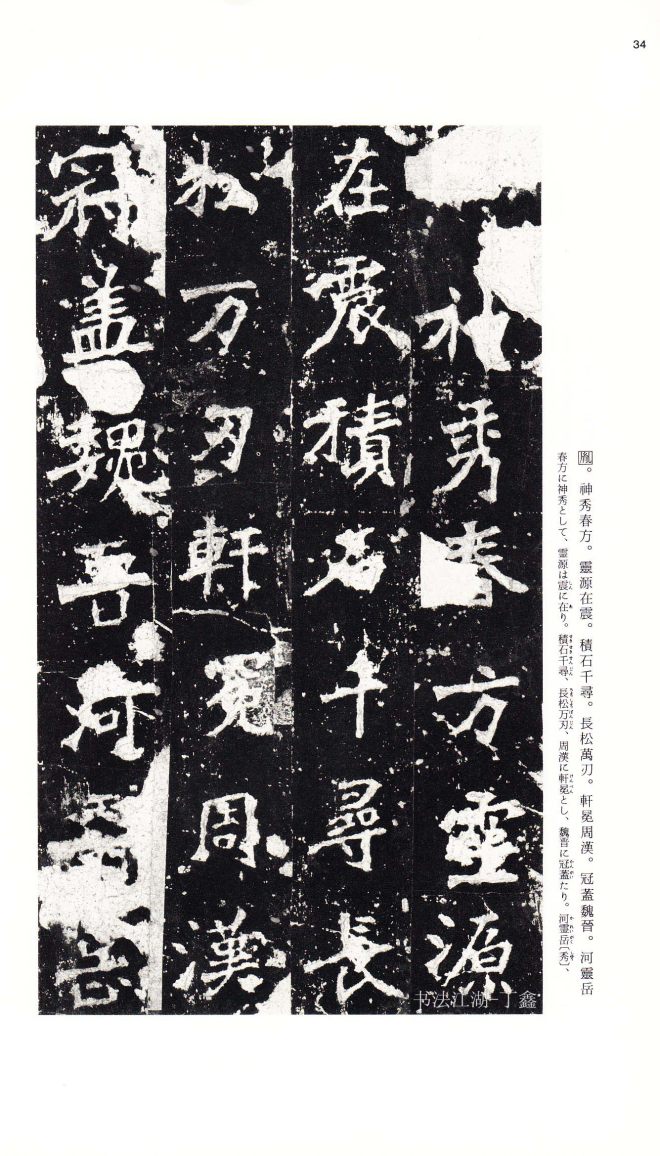 34
胤。神秀春方。靈源在震。積石千尋。長松萬刃。軒冕周漢。冠蓋魏晉。河靈岳
春方に神秀として、靈源は震に在り。積石千尋、長松万刃、周漢に軒冕とし、魏晋に冠蓋たり。河靈岳〔秀〕、
神秀春方靈源
在震積石千尋長
松万刃軒冕周漢
冠盖魏晉河靈岳
书法江湖-丁鑫